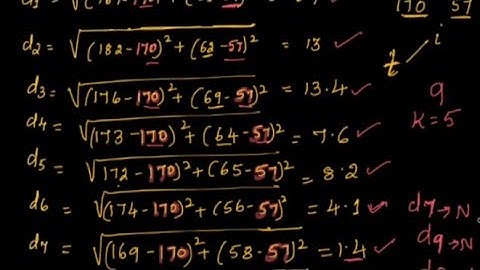 170 57
d2 = √(182-170)² + (62-57)² = 13 ✓
i
d3 = √(176-170)² + (69-57)² = 13.4 ✓
9
d4 = √(173-170)² + (64-57)² = 7.6 ✓
K=5
d5 = √(172-170)² + (65-57)² = 8.2 ✓
d6 = √(174-170)² + (56-57)² = 4.1 ✓
d7 → N
d7 = √(169-170)² + (58-57)² = 1.4 ✓
d9 → N